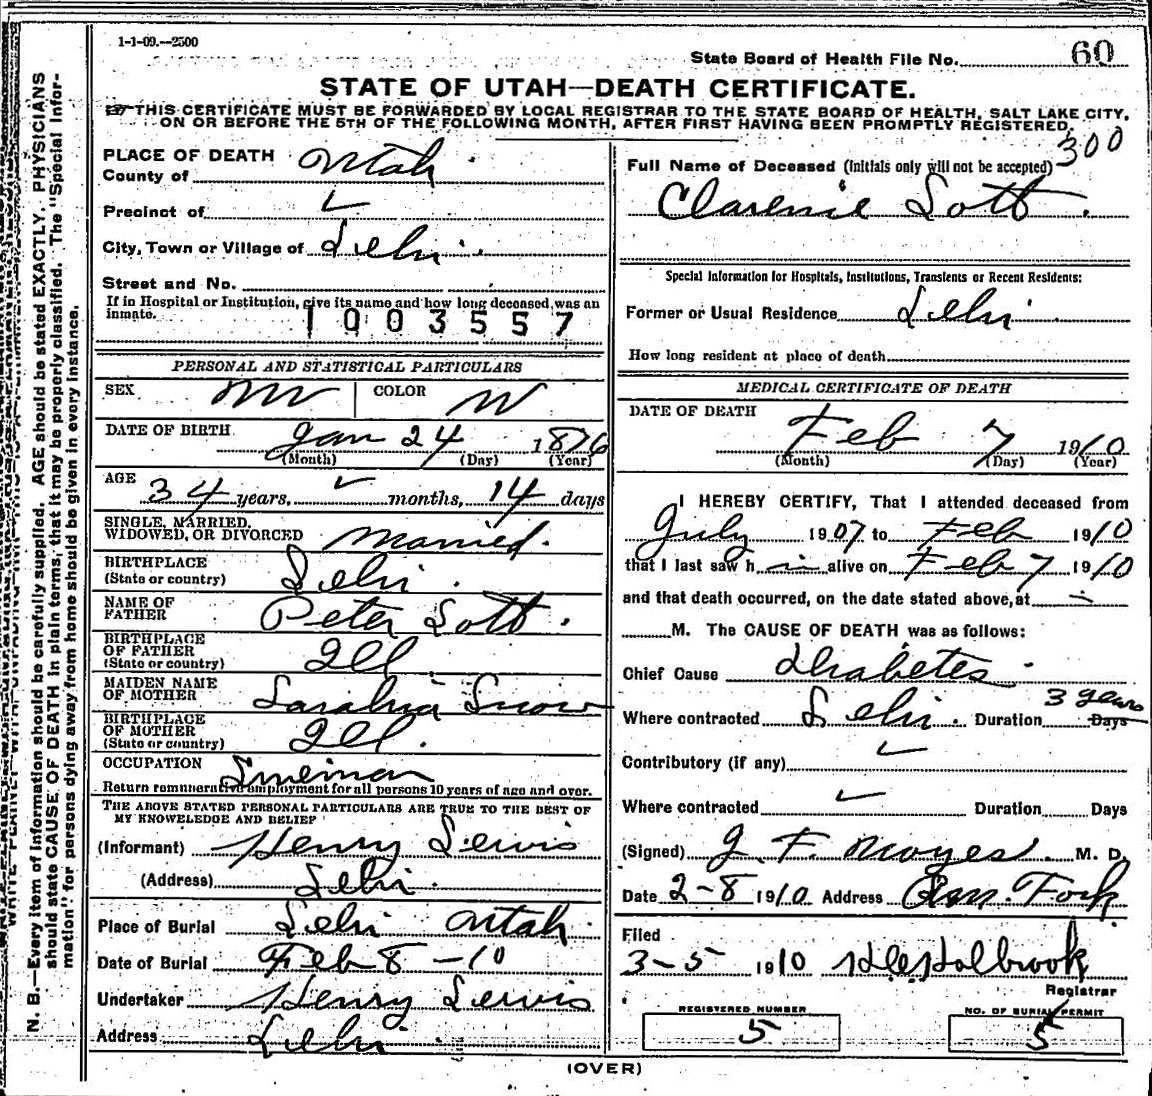 1-1-09.--2500
State Board of Health File No. 60
STATE OF UTAH—DEATH CERTIFICATE.
THIS CERTIFICATE MUST BE FORWARDED BY LOCAL REGISTRAR TO THE STATE BOARD OF HEALTH, SALT LAKE CITY,
ON OR BEFORE THE 5TH OF THE FOLLOWING MONTH, AFTER FIRST HAVING BEEN PROMPTLY REGISTERED.
300
PLACE OF DEATH
County of Utah
Precinct of
City, Town or Village of Lehi.
Street and No.
If in Hospital or Institution, give its name and how long deceased was an
inmate.
1003557
PERSONAL AND STATISTICAL PARTICULARS
SEX M COLOR W
DATE OF BIRTH Jan 24 1876
(Month) (Day) (Year)
AGE 34 years, months, 14 days
SINGLE, MARRIED,
WIDOWED, OR DIVORCED Married.
BIRTHPLACE
(State or country) Lehi.
NAME OF
FATHER Peter Lott.
BIRTHPLACE
OF FATHER
(State or country) Ill
MAIDEN NAME
OF MOTHER Snow
BIRTHPLACE
OF MOTHER
(State or country) Ill.
OCCUPATION
Return remunerative employment for all persons 10 years of age and over.
THE ABOVE STATED PERSONAL PARTICULARS ARE TRUE TO THE BEST OF
MY KNOWLEDGE AND BELIEF
(Informant) Henry Lewis
(Address) Lehi.
Place of Burial Lehi Utah.
Date of Burial Feb 8 -10
Undertaker Henry Lewis
Address Lehi
Full Name of Deceased (initials only will not be accepted)
Clarence Lott.
Special Information for Hospitals, Institutions, Transients or Recent Residents:
Former or Usual Residence Lehi
How long resident at place of death
MEDICAL CERTIFICATE OF DEATH
DATE OF DEATH
Feb 7 1910
(Month) (Day) (Year)
I HEREBY CERTIFY, That I attended deceased from
July 1907 to Feb 1910
that I last saw h im alive on Feb 7 1910
and that death occurred, on the date stated above, at
M. The CAUSE OF DEATH was as follows:
Chief Cause Diabetes
Where contracted Lehi. Duration 3 years Days
Contributory (if any)
Where contracted Duration Days
(Signed) J. F. Noyes. M. D.
Date 2-8 1910 Address Am. Fork
Filed
3-5 1910 Holbrook
Registrar
REGISTERED NUMBER
5
NO. OF BURIAL PERMIT
5
(OVER)
N. B.—Every item of Information should be carefully supplied. AGE should be stated EXACTLY. PHYSICIANS
should state CAUSE OF DEATH in plain terms, that it may be properly classified. The "Special Infor-
mation" for persons dying away from home should be given in every instance.